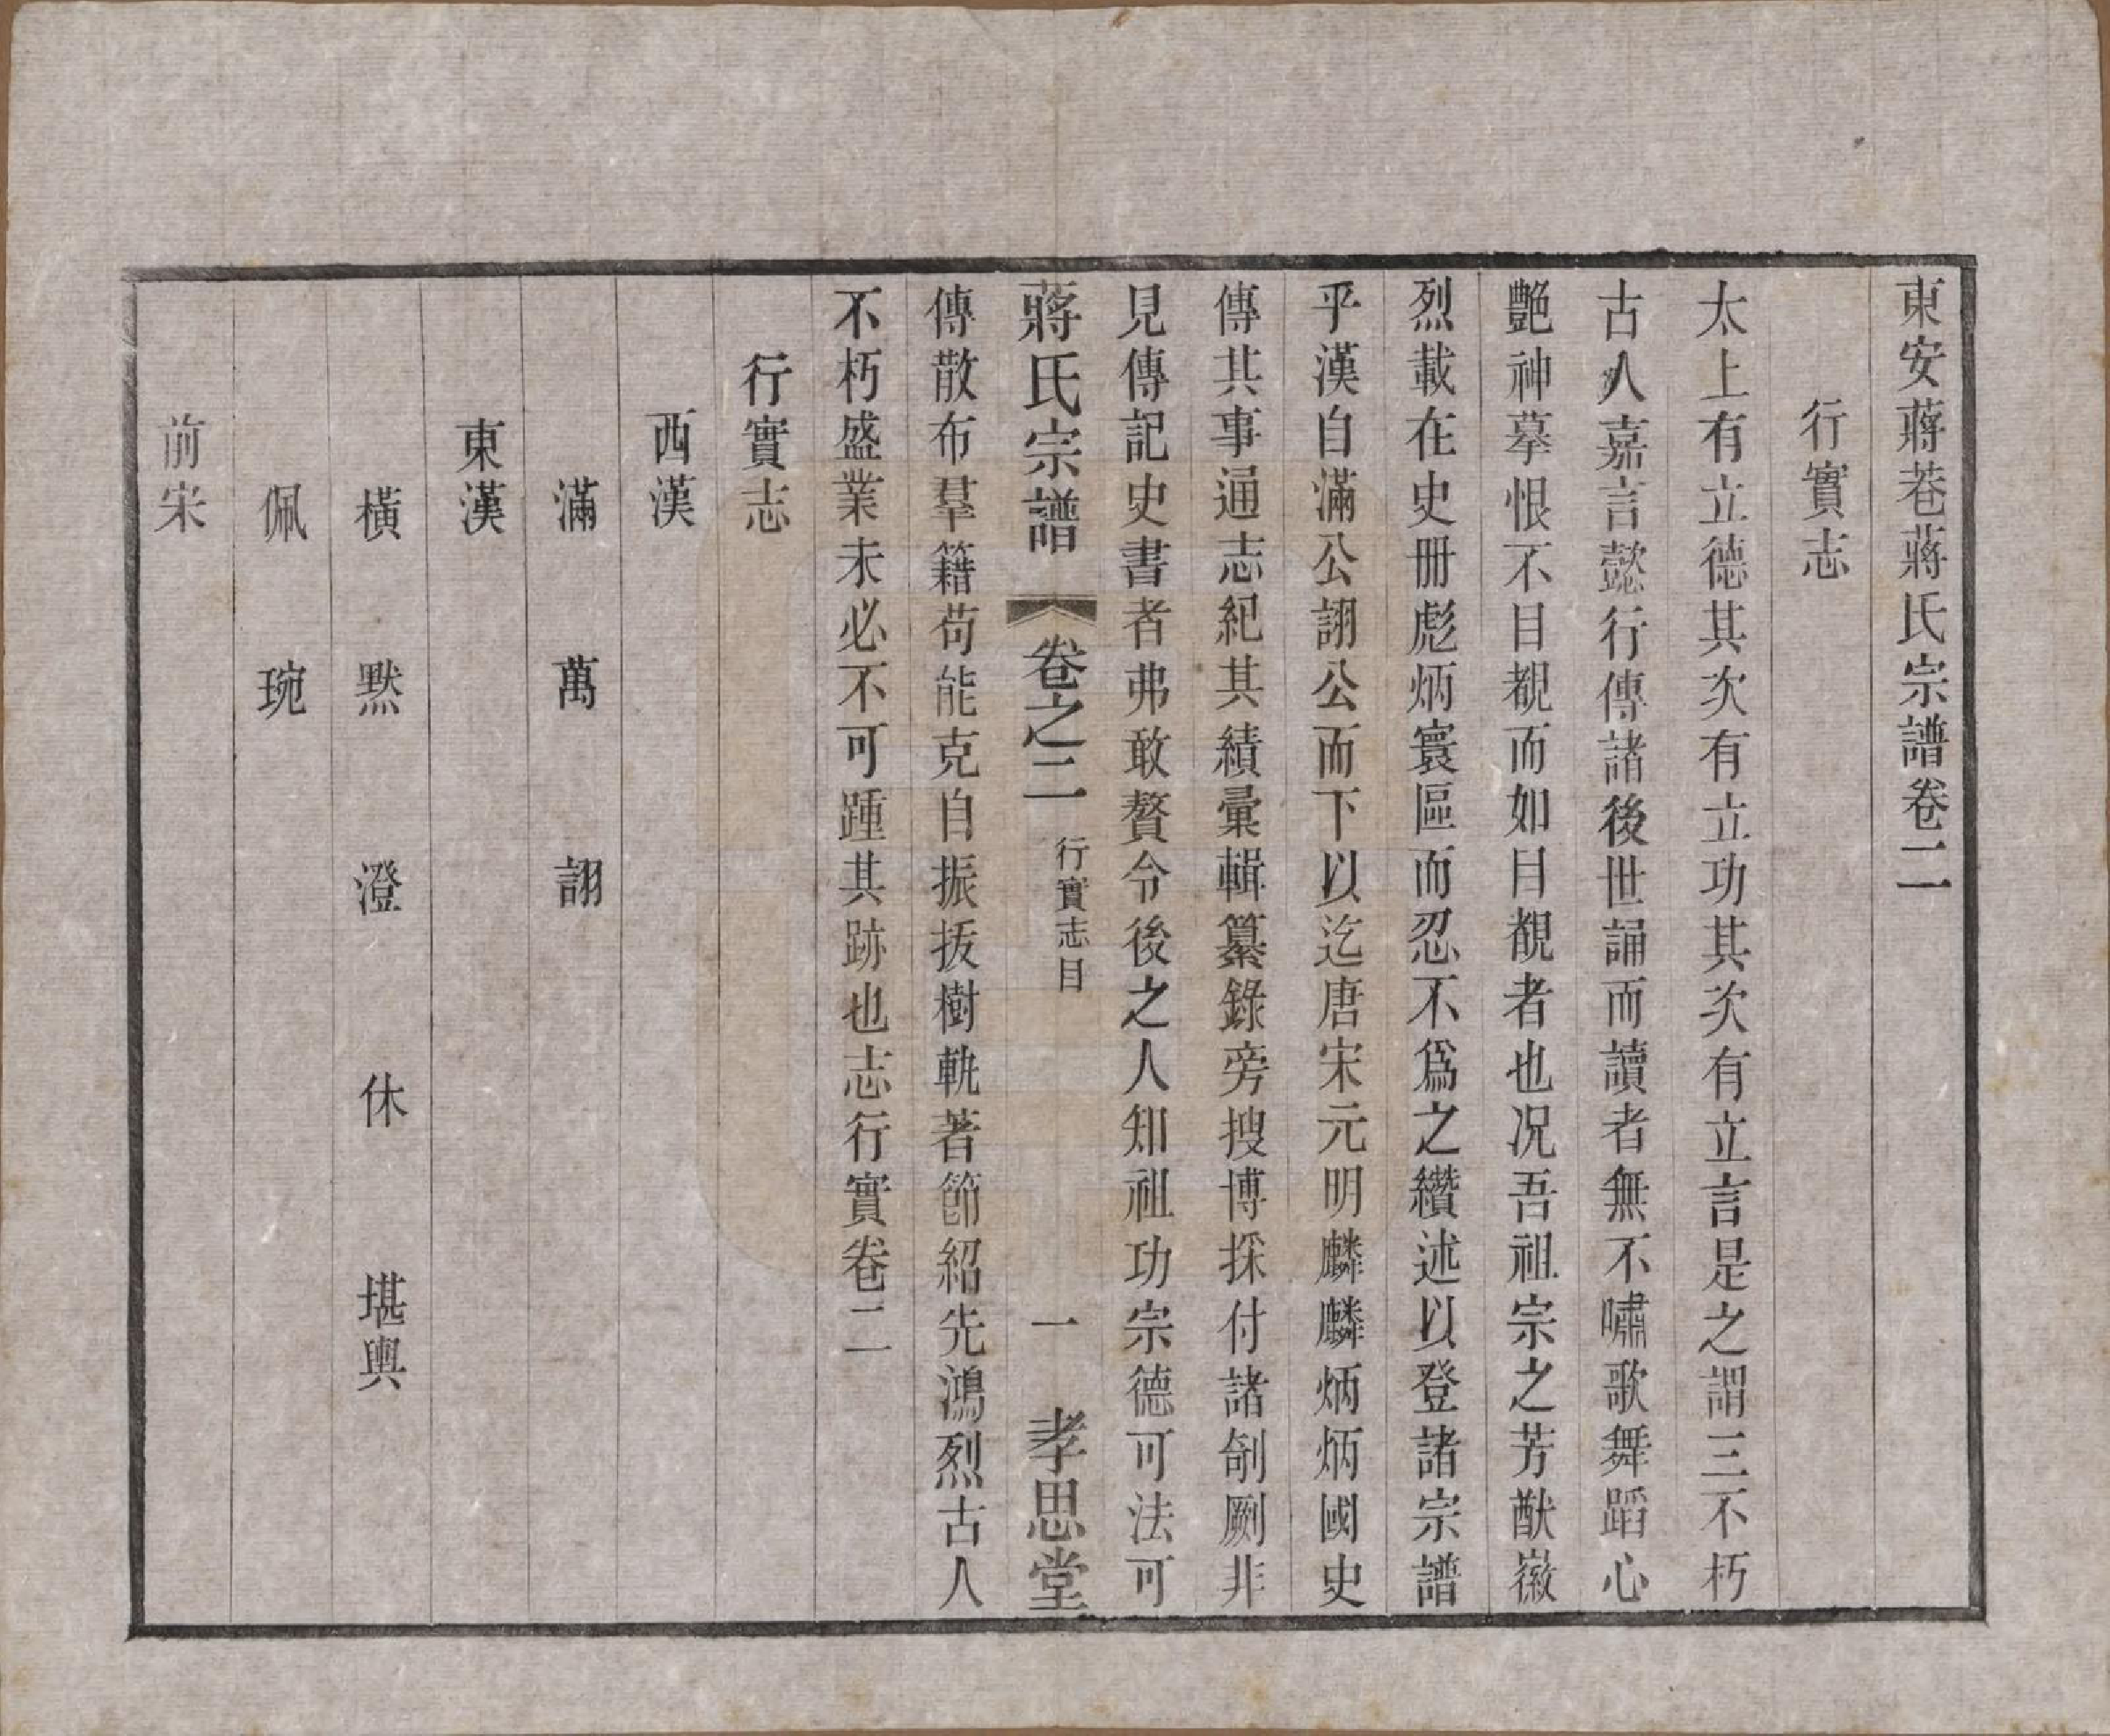 東安蔣巷蔣氏宗譜卷二
行實志
太上有立德其次有立功其次有立言是之謂三不朽
古人嘉言懿行傳諸後世誦而讀者無不嘯歌舞蹈心
艷神摹恨不目覩而如目覩者也况吾祖宗之芳猷徽
烈載在史册彪炳寰區而忍不爲之纘述以登諸宗譜
乎漢自滿公詡公而下以迄唐宋元明麟麟炳炳國史
傳其事通志紀其績彙輯纂錄旁搜博採付諸剞劂非
見傳記史書者弗敢贅令後之人知祖功宗德可法可
蔣氏宗譜 卷之二 行實志目 一 孝思堂
傳散布羣籍苟能克自振拔樹軌著節紹先鴻烈古人
不朽盛業未必不可踵其跡也志行實卷二
行實志
西漢
滿 萬 詡
東漢
橫 默 澄 休 堪輿
佩 琬
前宋